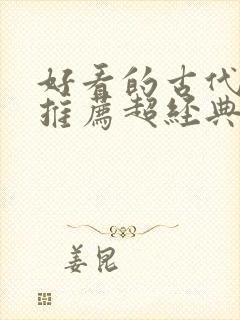 好看的古代
推薦超經典
姜昆